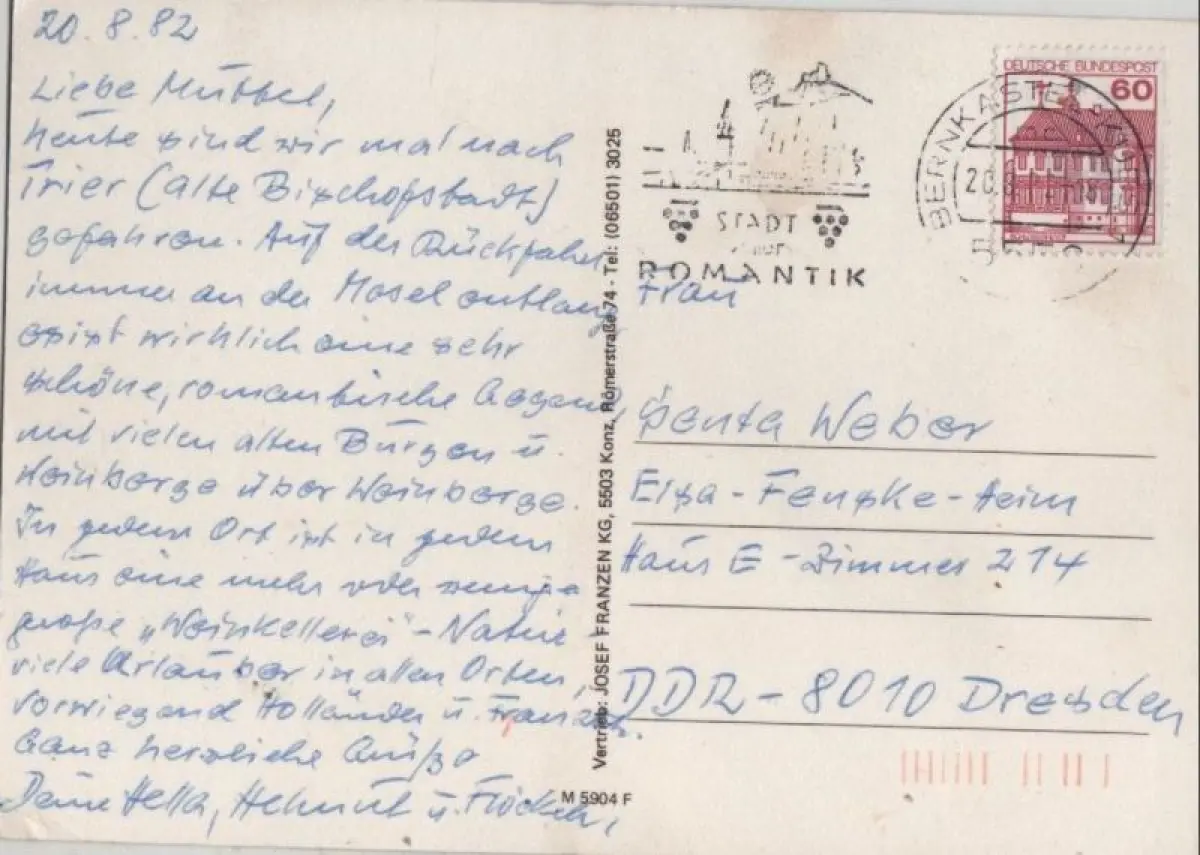 20.8.82
Liebe Muttel,
heute sind wir mal nach
Trier (alte Bischofstadt)
gefahren. Auf der Rückfahrt
immer an der Mosel entlang
es ist wirklich eine sehr
schöne, romantische Gegend,
mit vielen alten Burgen u.
Weinberge über Weinberge.
In jedem Ort ist in jedem
Haus eine mehr oder wenige
große „Weinkellerei" -
viele Urlauber in allen Orten,
vorwiegend Holländer u. Franzos.
Ganz herzliche Grüße
Deine Hella, Helmut u. Flöckchen,
Vertrieb: JOSEF FRANZEN KG, 5503 Konz, Römerstraße 74 - Tel: (06501) 3025
M 5904 F
STADT
DER
ROMANTIK
DEUTSCHE BUNDESPOST
60
BERNKASTEL-KUES
20.8
Frau
Senta Weber
Elsa-Fenske-Heim
Haus E - Zimmer 214
DDR - 8010 Dresden